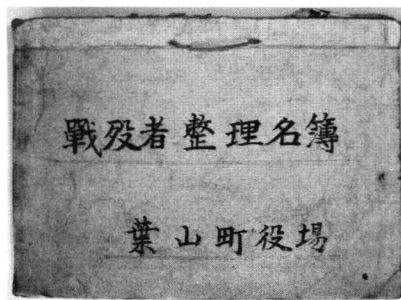 戰殁者整理名簿
葉山町役場